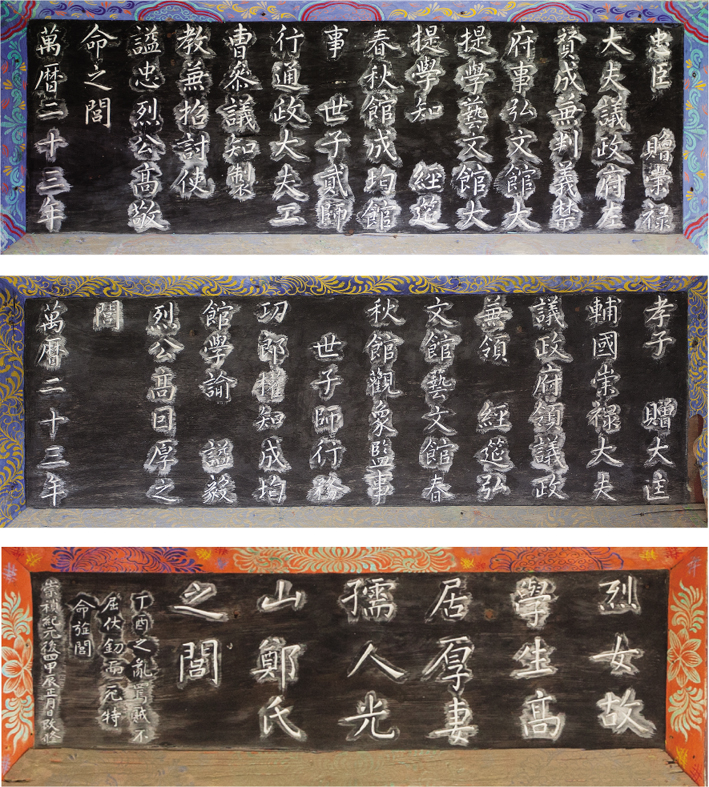 忠臣 贈崇祿
大夫議政府左
贊成兼判義禁
府事弘文館大
提學藝文館大
提學知 經筵
春秋館成均館
事 世子貳師
行通政大夫工
曹參議知製
教兼招討使
謚忠烈公高敬
命之閭
萬曆二十三年
孝子 贈大匡
輔國崇祿大夫
議政府領議政
兼領 經筵弘
文館藝文館春
秋館觀象監事
世子師行務
功郎權知成均
館學諭 謚毅
烈公高因厚之
閭
萬曆二十三年
烈女故
學生高
居厚妻
孺人光
山鄭氏
之閭
丁酉之亂罵賊不
屈伏劒而死特
命旌閭
崇禎紀元後四甲辰正月日改修